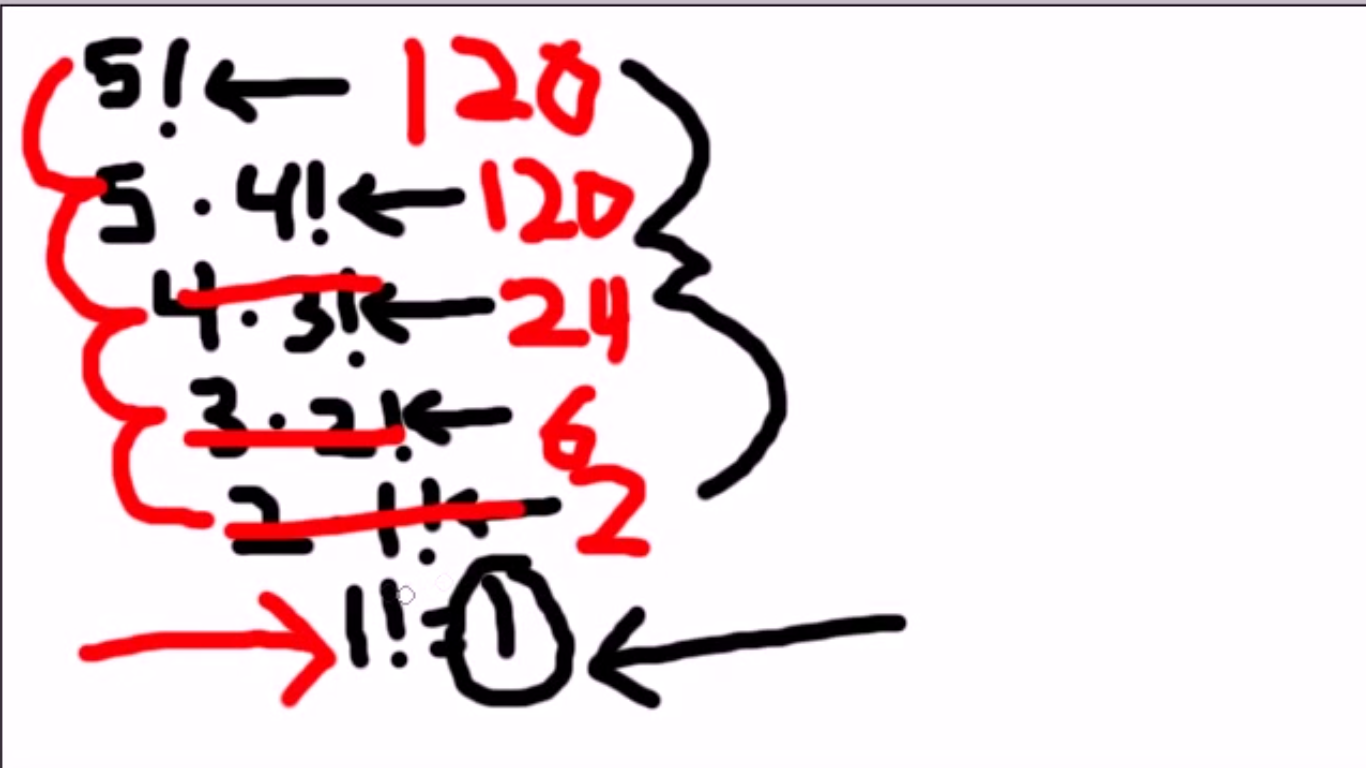 5! ← 120
5 · 4! ← 120
4 · 3! ← 24
3 · 2! ← 6
2 1! ← 2
1! = 1